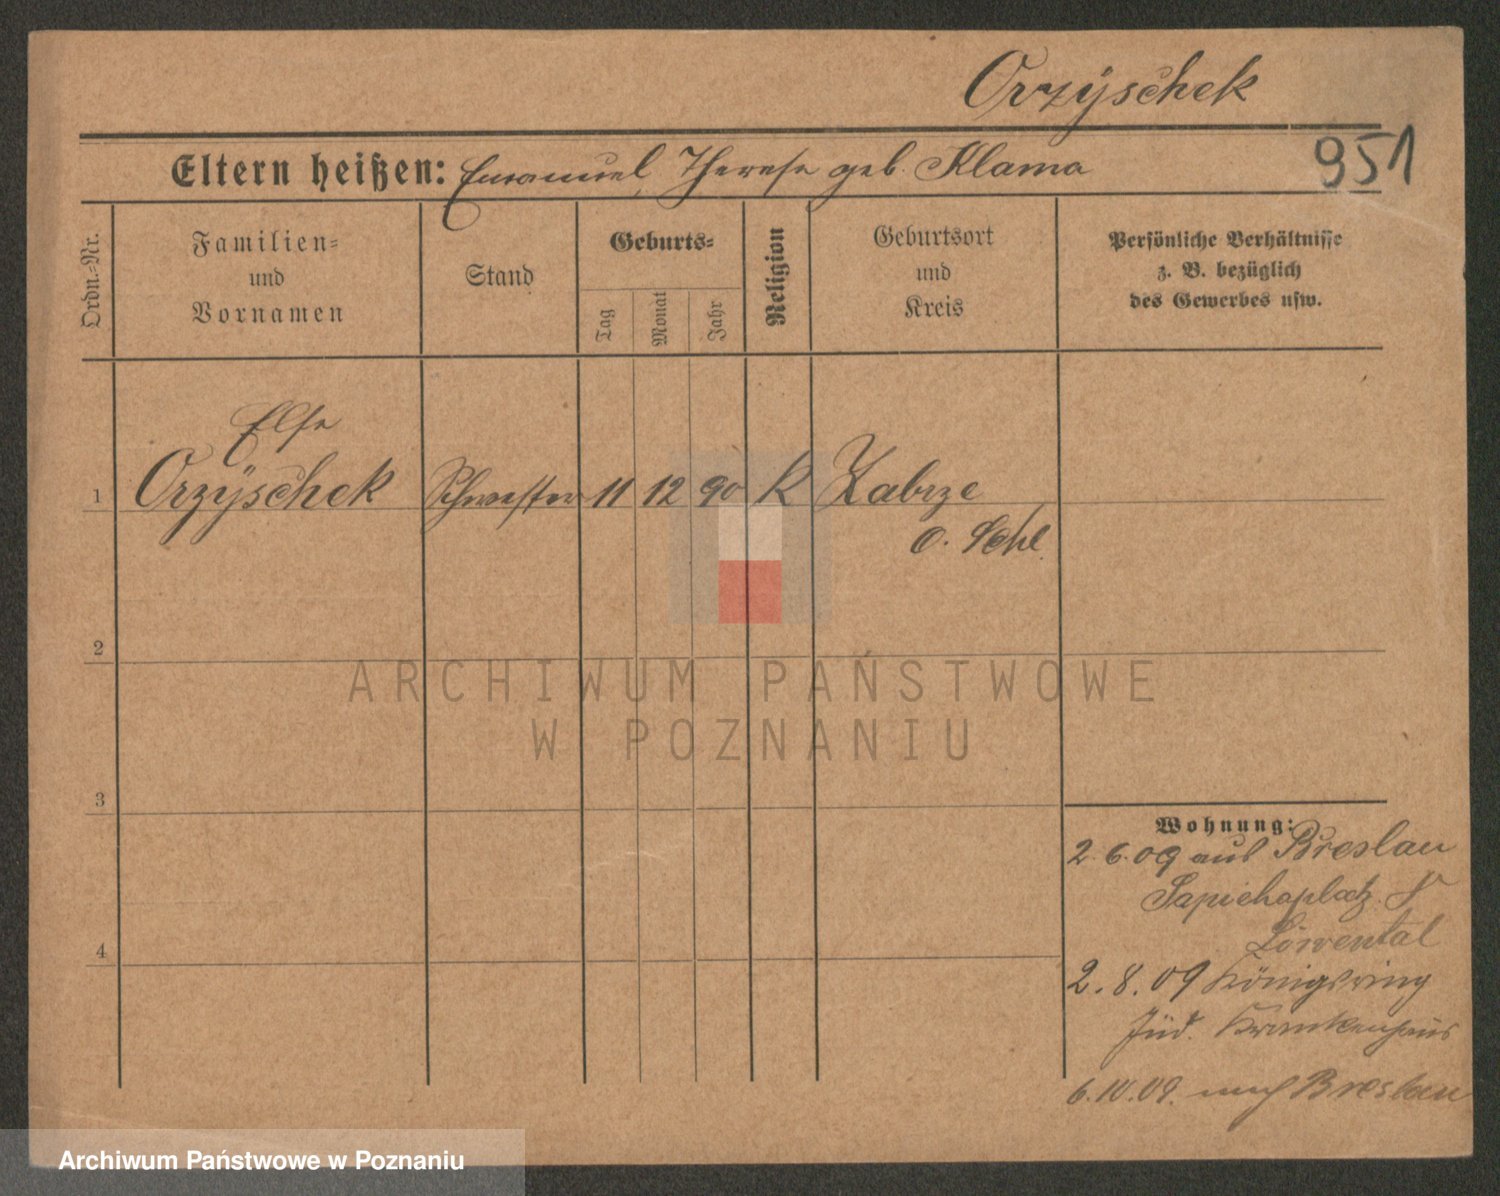 Orzÿschek
951
Eltern heißen: Emanuel, Therese geb. Klama
Ordn.-Nr.
Familien-
und
Vornamen
Stand
Geburts-
Tag
Monat
Jahr
Religion
Geburtsort
und
Kreis
Persönliche Verhältnisse
z. B. bezüglich
des Gewerbes usw.
Else
1 Orzÿschek Schwester 11 12 90 K Zabrze
O. Schl.
2
3
4
Wohnung:
2. 6. 09 aus Breslau
Sapiehaplatz
Löwental
2. 8. 09 Königsring
Jüd. Krankenhaus
6. 10. 09. nach Breslau
ARCHIWUM PAŃSTWOWE
W POZNANIU
Archiwum Państwowe w Poznaniu